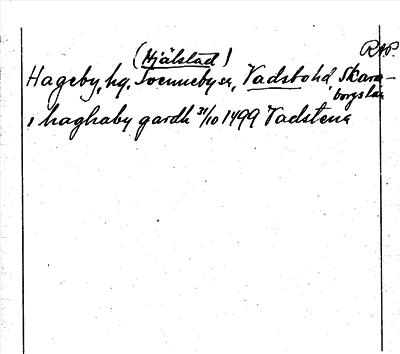 RAP.
(Hjälstad)
Hageby, hg, Toenneby sn, Vadsbo hd, Skara-
borgs län
i haghaby gardh 31/10 1499 Vadstena